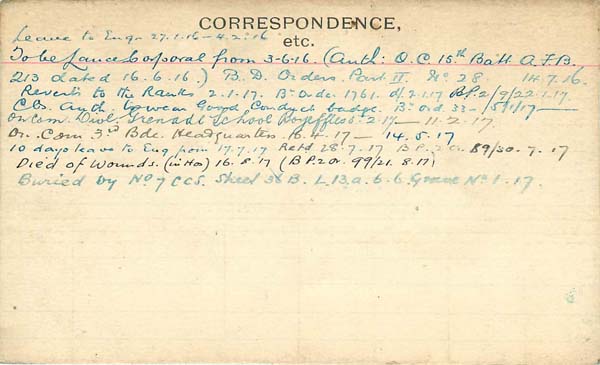 CORRESPONDENCE,
etc.
Leave to Eng. 27.1.16 - 4.2.16
To be Lance Corporal from 3-6-16. (Auth: O.C. 15th Batt. A.F.B.
213 dated 16.6.16.) B.D. Orders. Part II. No 28. 14.7.16.
Reverts to the Ranks 2.1.17. Bn Orde. 1761. d/2.1.17 B.P.2/9/22.1.17.
C.O's Auth. to wear Good Conduct badge. Bn ord. 33 - /5/1/17 —
On com. Divl. Grenade School 2.17 — 11-2-17.
On Com 3rd Bde. Headquarters 6.4.17 — 14.5.17
10 days leave to Eng from 17.7.17 Retd 28.7.17 B.P. 2 Or. 89/30.7.17
Died of Wounds. 16.8.17 (B.P. 2 Or. 99/21.8.17)
Buried by No 7 CCS. Sheet 36B. L.13.a.6.6. Grave No 1.17.